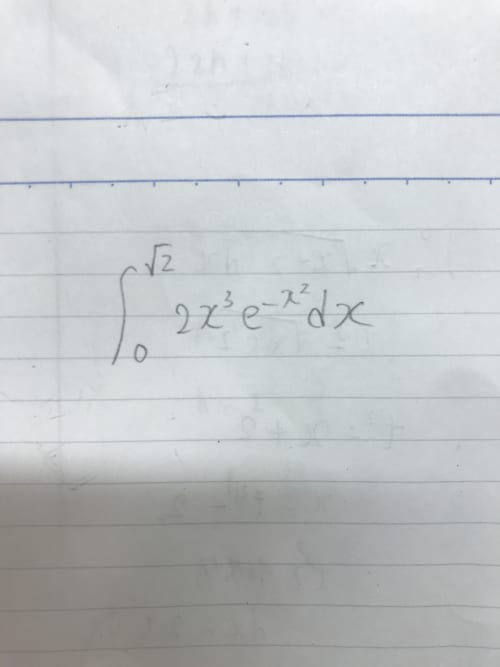 ∫₀^√2 2x³e^{-x²}dx